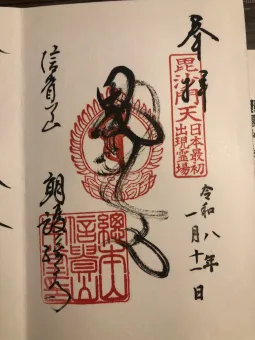 奉拝
毘沙門天
日本最初
出現霊場
令和八年
一月十一日
信貴山
朝護孫子
總本山
信貴山